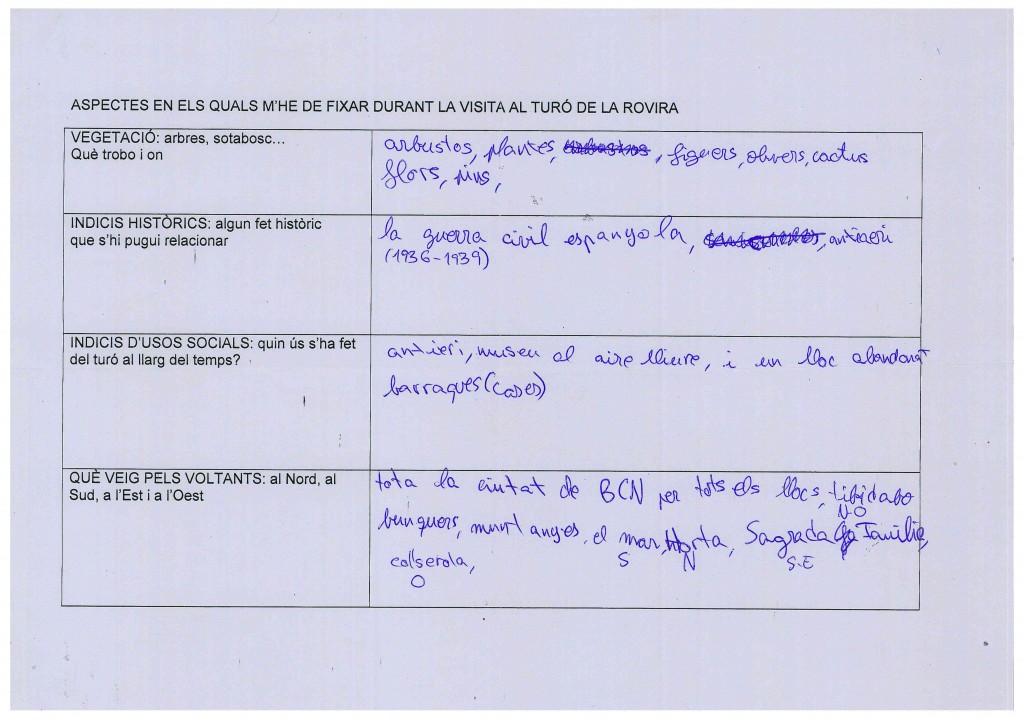 ASPECTES EN ELS QUALS M'HE DE FIXAR DURANT LA VISITA AL TURÓ DE LA ROVIRA
VEGETACIÓ: arbres, sotabosc...
Què trobo i on
arbustos, plantes, , figuers, olivers, cactus
flors, pins,
INDICIS HISTÒRICS: algun fet històric
que s'hi pugui relacionar
la guerra civil espanyola, , antiaeri
(1936-1939)
INDICIS D'USOS SOCIALS: quin ús s'ha fet
del turó al llarg del temps?
antieri, museu al aire lliure, i un lloc abandonat
barraques (cases)
QUÈ VEIG PELS VOLTANTS: al Nord, al
Sud, a l'Est i a l'Oest
tota la ciutat de BCN per tots els llocs, tibidabo
N-O
bunquers, muntanyes, el mar, Horta, Sagrada Familia,
S N S-E
collserola,
O